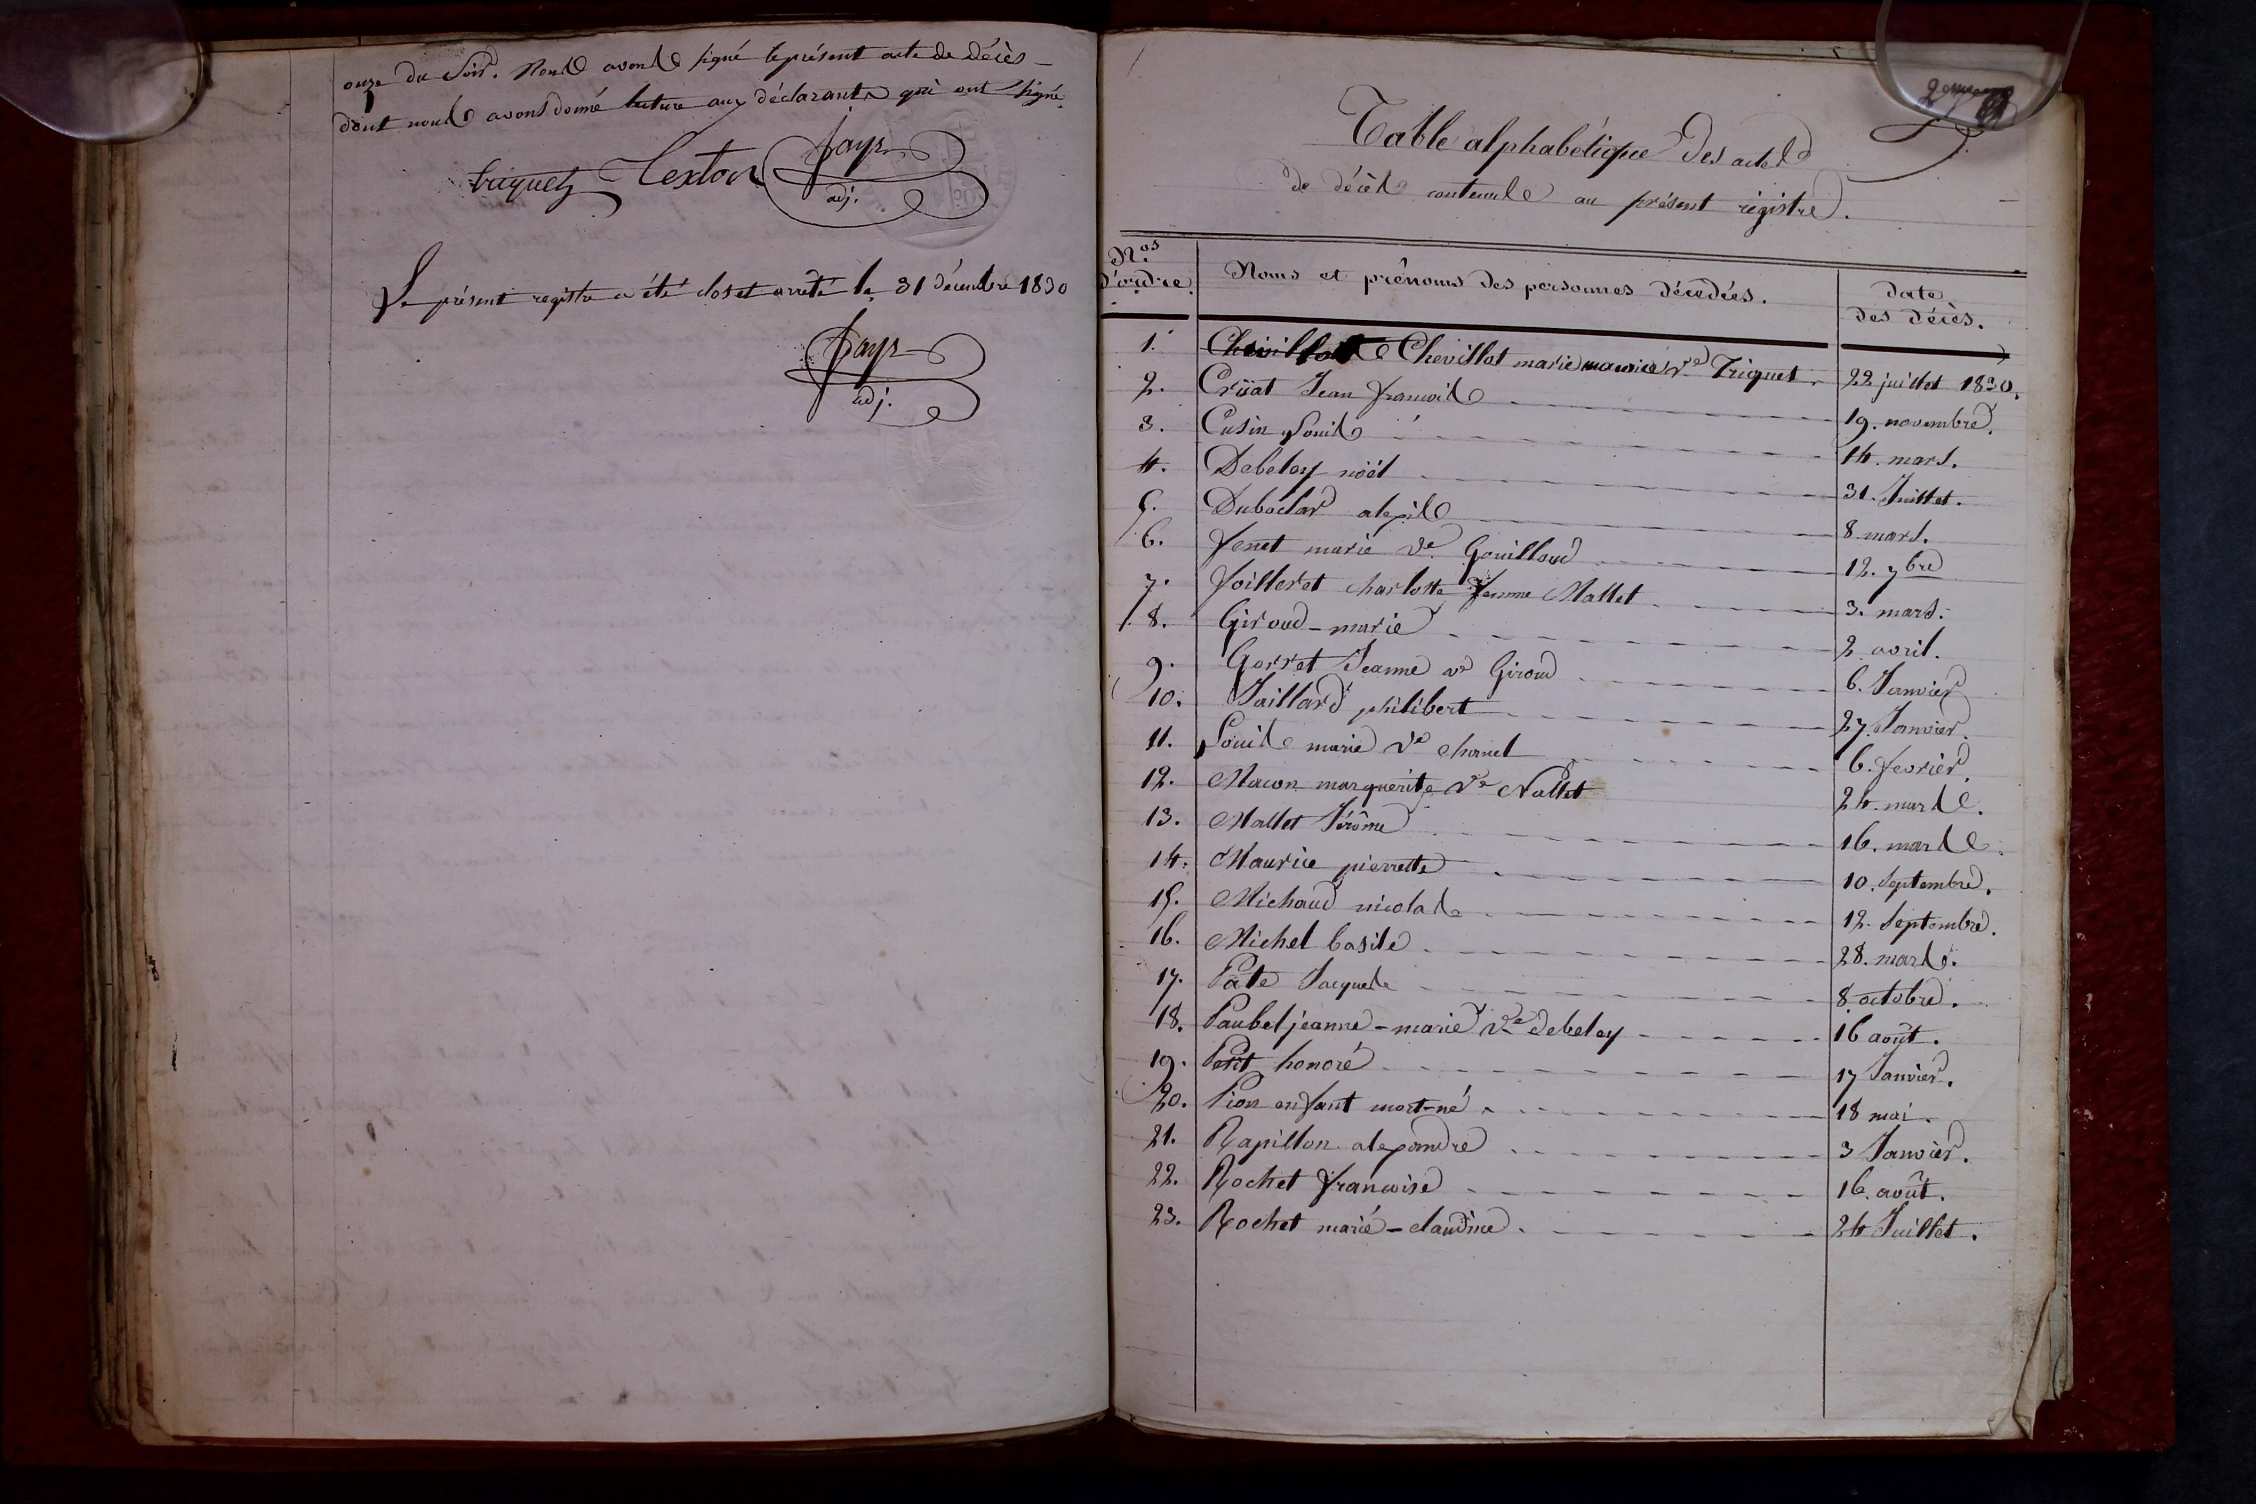 onze du Soir. Nous avons signé le présent acte de décès –
dont nous avons donné lecture aux déclarants qui ont signé.
triquet Texton Pays
adj.
Le présent registre a été clos et arrêté le 31 décembre 1830
Pays
adj.
Table alphabétique des actes
de décès contenus au présent régistre.
Nos d'ordre. Noms et prênoms des personnes décedées. date des décès.
1. Chevillot marie Ve Triquet. 22 juillet 1830.
2. Crüat Jean francois 19. novembre.
3. Cusin Louis 14. mars.
4. Debeley nöel 31. Juillet.
5. Duboclar alexis 8 mars.
6. fenet marie Ve Gouilloud 12. 7bre
7. foilleret charlotte femme Mallet 3. mars.
8. Giroud - marie 2 avril.
9. Gorret Jeanne ve Giroud 6. Janvier
10. Jaillard philibert 27. Janvier.
11. Louis marie Ve charnel 6. fevrier.
12. Macon marguerite Ve Nallet 24. mars.
13. Mallet Jérôme 16. mars.
14. Maurice pierrette 10. Septembre.
15. Michaud nicolas 12. Septembre.
16. Michel basile 28. mars.
17. Pate Jacques 8 octobre.
18. Paubel jeanne - marie Ve debeley 16 août.
19. Petit honoré 17 Janvier.
20. Pion enfant mort-né 18 mai.
21. Rapillon alexandre 3 Janvier.
22. Rochet francoise 16. août.
23. Rochet marie - claudine. 24 Juillet.